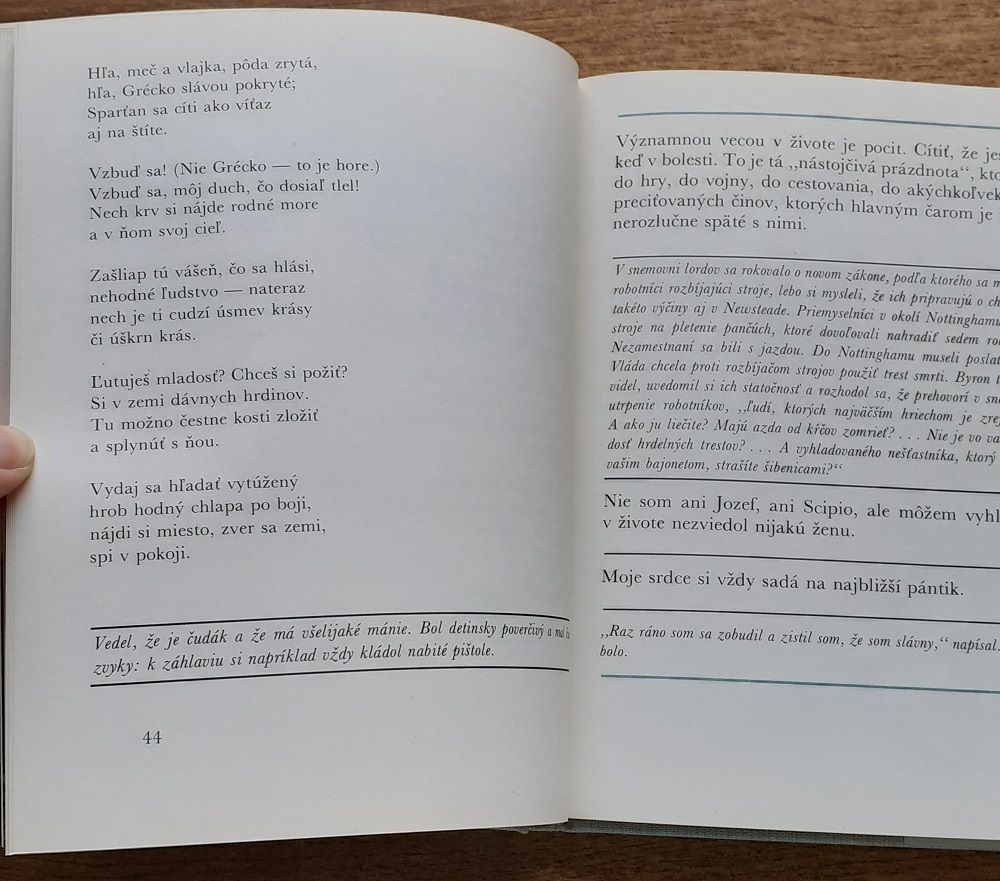 Hľa, meč a vlajka, pôda zrytá,
hľa, Grécko slávou pokryté;
Sparťan sa cíti ako víťaz
aj na štíte.
Vzbuď sa! (Nie Grécko — to je hore.)
Vzbuď sa, môj duch, čo dosiaľ tlel!
Nech krv si nájde rodné more
a v ňom svoj cieľ.
Zašliap tú vášeň, čo sa hlási,
nehodné ľudstvo — nateraz
nech je ti cudzí úsmev krásy
či úškrn krás.
Ľutuješ mladosť? Chceš si požiť?
Si v zemi dávnych hrdinov.
Tu možno čestne kosti zložiť
a splynúť s ňou.
Vydaj sa hľadať vytúžený
hrob hodný chlapa po boji,
nájdi si miesto, zver sa zemi,
spi v pokoji.
Vedel, že je čudák a že má všelijaké mánie. Bol detinsky poverčivý a mal
zvyky: k záhlaviu si napríklad vždy kládol nabité pištole.
44
Významnou vecou v živote je pocit. Cítiť, že
keď v bolesti. To je tá ,,nástojčivá prázdnota“,
do hry, do vojny, do cestovania, do akýchkoľvek
preciťovaných činov, ktorých hlavným čarom je
nerozlučne späté s nimi.
V snemovni lordov sa rokovalo o novom zákone, podľa ktorého sa
robotníci rozbíjajúci stroje, lebo si mysleli, že ich pripravujú o
takéto výčiny aj v Newsteade. Priemyselníci v okolí Nottinghamu
stroje na pletenie pančúch, ktoré dovoľovali nahradiť sedem
Nezamestnaní sa bili s jazdou. Do Nottinghamu museli poslať
Vláda chcela proti rozbíjačom strojov použiť trest smrti. Byron
videl, uvedomil si ich statočnosť a rozhodol sa, že prehovorí v
utrpenie robotníkov, ,,ľudí, ktorých najväčším hriechom je
A ako ju liečite? Majú azda od kŕčov zomrieť? . . . Nie je vo
dosť hrdelných trestov? . . . A vyhladovaného nešťastníka, ktorý
vašim bajonetom, strašíte šibenicami?“
Nie som ani Jozef, ani Scipio, ale môžem
v živote nezviedol nijakú ženu.
Moje srdce si vždy sadá na najbližší pántik.
,,Raz ráno som sa zobudil a zistil som, že som slávny,“ napísal.
bolo.